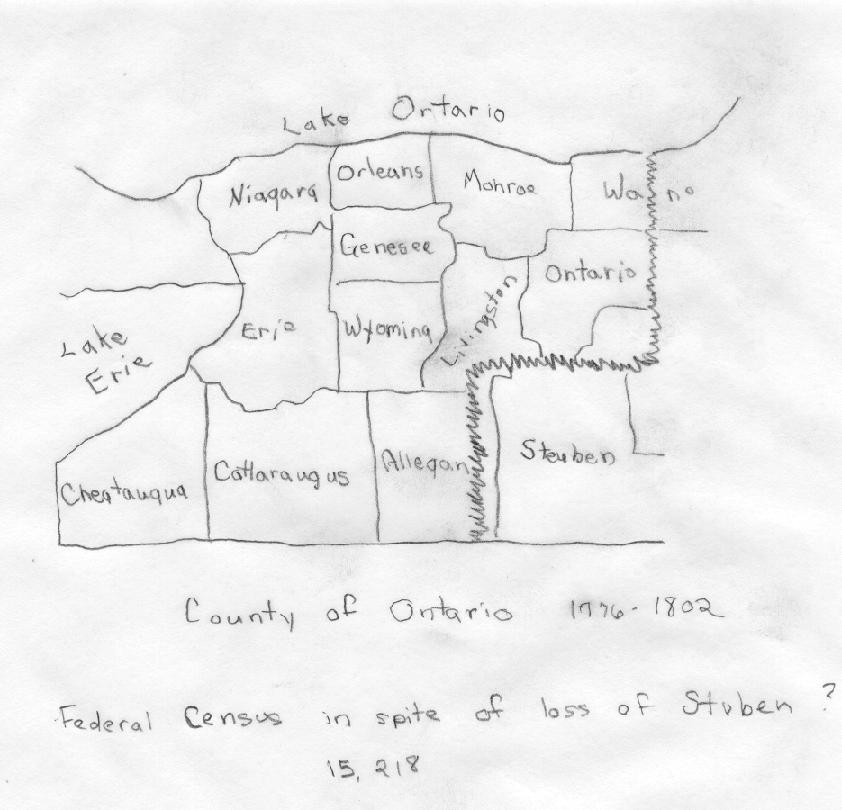 Lake Ontario
Niagara
Orleans
Monroe
Wa no
Genesee
Ontario
Lake
Erie
Erie
Wyoming
Livingston
Cheatauqua
Cattaraugus
Allegan
Steuben
County of Ontario 1796-1802
Federal Census in spite of loss of Stuben ?
15,218